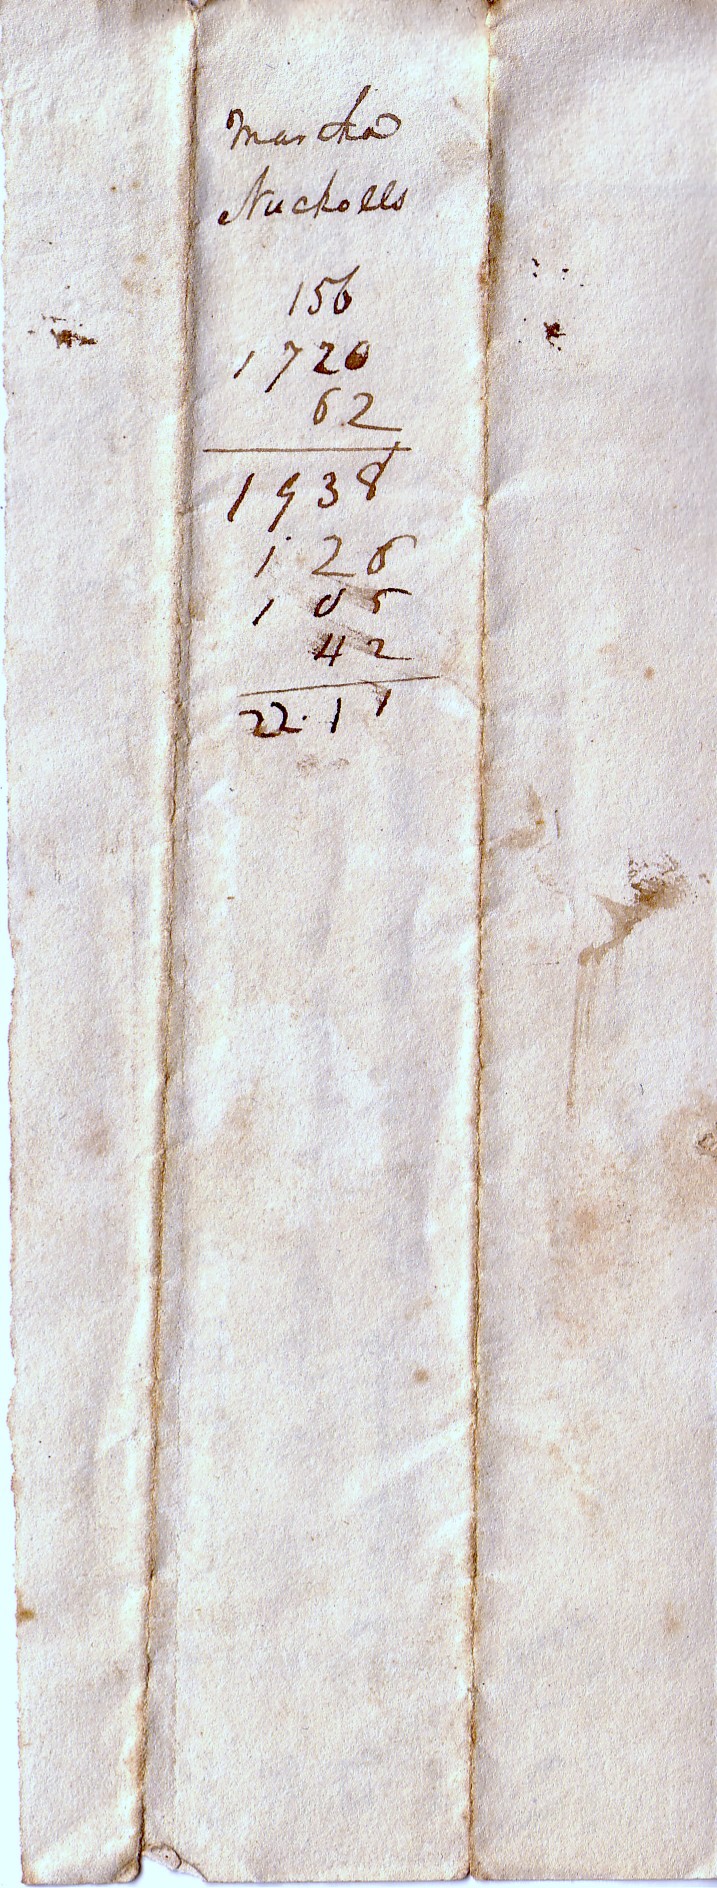 Martha
Nuckolls
156
1720
62
1938
126
105
42
22.11